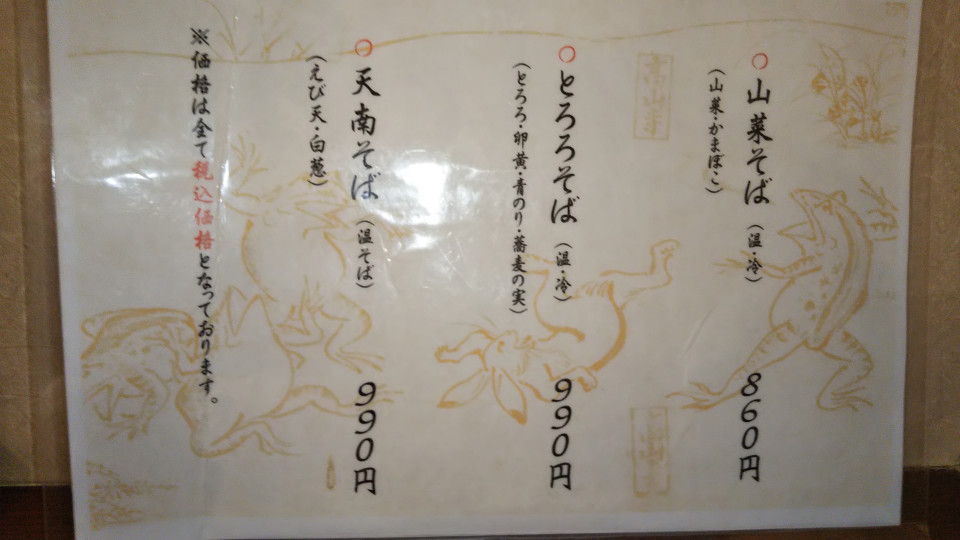 ○山菜そば（温・冷） 860円
（山菜・かまぼこ）
○とろろそば（温・冷） 990円
（とろろ・卵黄・青のり・蕎麦の実）
○天南そば（温そば） 990円
（えび天・白葱）
※価格は全て税込価格となっております。